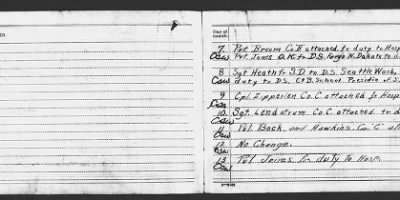 Day of
7 Pvt. Broom Co. H attached for duty to Hosp
Csw Pvt. Jones O.K. to D.S. Fargo N. Dakota to
8 Sgt Heath fr S.D. to D.S. Seattle Wash.
Csw duty to D.S. C+B. School Presidio of S.
9 Cpl. Zipperien Co. C. attached to Hosp
Csw
10 Sgt. Lendstrum Co. C attached to d
Csw
11 Pvt. Back, and Hawkins, Co. G
Csw
12 No Change.
Csw
13 Pvt. Jones, fr duty to Hosp.
Csw